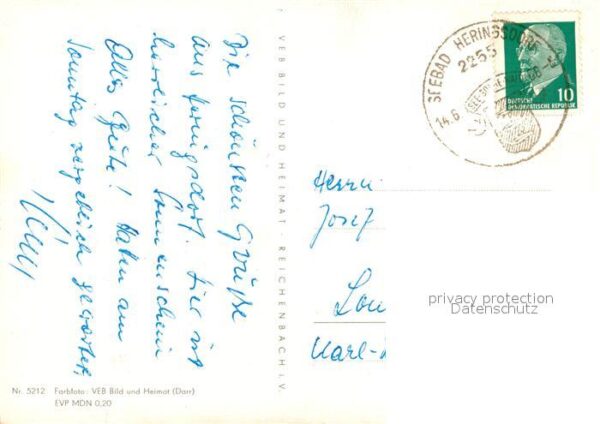 Die schönsten Grüße
aus Heringsdorf. Hier ist
herrlicher Sonnenschein
Alles Gute! Haben am
Sonntag vergeblich gewartet,
VEB BILD UND HEIMAT · REICHENBACH I. V.
SEEBAD HERINGSDORF
2255
14.6
10
DEUTSCHE
DEMOKRATISCHE REPUBLIK
Herrn
Josef
Lou
Karl-
privacy protection
Datenschutz
Nr. 5212 Farbfoto: VEB Bild und Heimat (Darr)
EVP MDN 0,20